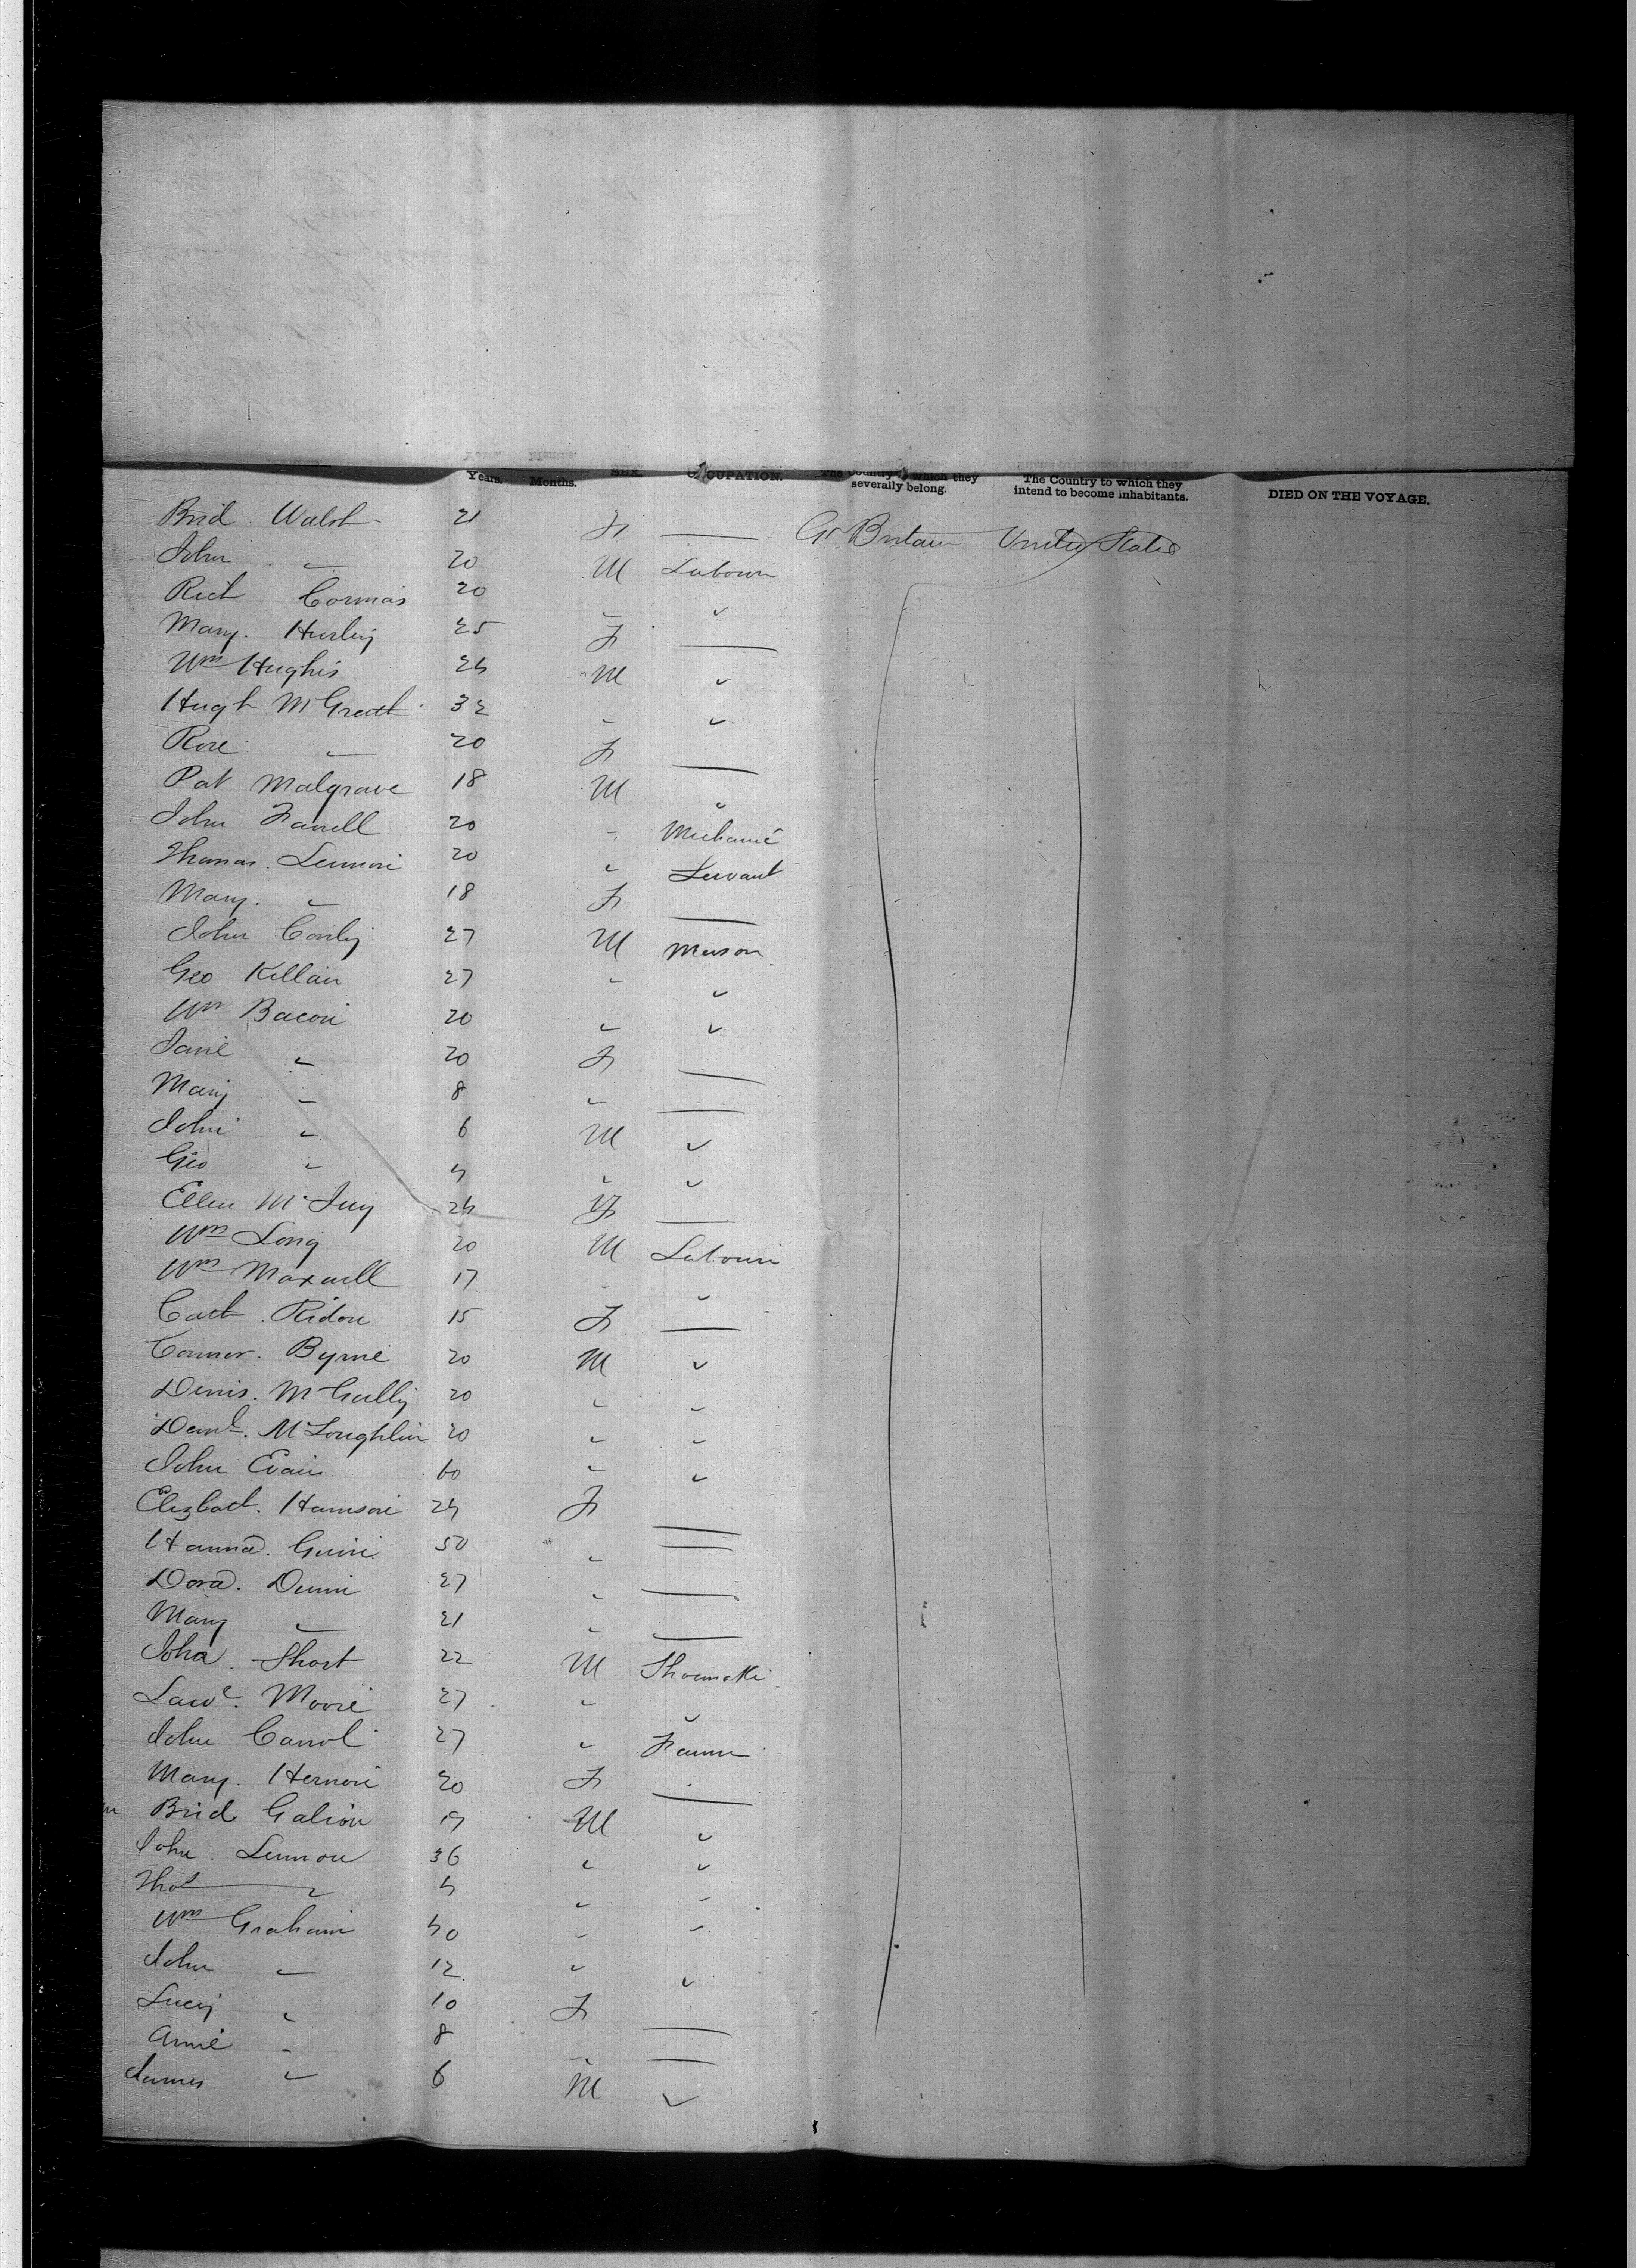 Years. Months. SEX OCCUPATION. The Country to which they severally belong. The Country to which they intend to become inhabitants. DIED ON THE VOYAGE.
Brid. Walsh 21 F — Gt Britain United States
John " 20 M Labourer
Rich Cormas 20 " "
Mary. Hurley 25 F —
Wm Hughes 24 M "
Hugh McGrath 32 " "
Rose " 20 F —
Pat Malgrave 18 M "
John Farrell 20 " Mechanic
Thomas. Lennon 20 " Servant
Mary. " 18 F —
John Conly 27 M Mason
Geo Killain 27 " "
Wm Bacon 20 " "
Jane " 20 F —
Mary " 8 " —
John " 6 M "
Geo " 4 " "
Ellen 24 F —
Wm Long 20 M Labourer
Wm Maxwell 17 " "
Cath. Ridon 15 F —
Connor. Byrne 20 M "
Denis. McGully 20 " "
Danl. McLoughlin 20 " "
John Evain 60 " "
Elizbath. Harrison 24 F —
Hanna. 50 " —
Dora. Dunn 27 " —
Mary " 21 " —
John. Short 22 M Shoemaker
Lawe. Moore 27 " "
John Carrol 27 " Farmer
Mary. Hernon 20 F —
Brid Galion 19 M "
John. Lennon 36 " "
Thos " 4 " "
Wm Graham 40 " "
John " 12 " "
Lucy " 10 F —
Annie " 8 " —
James " 6 M "